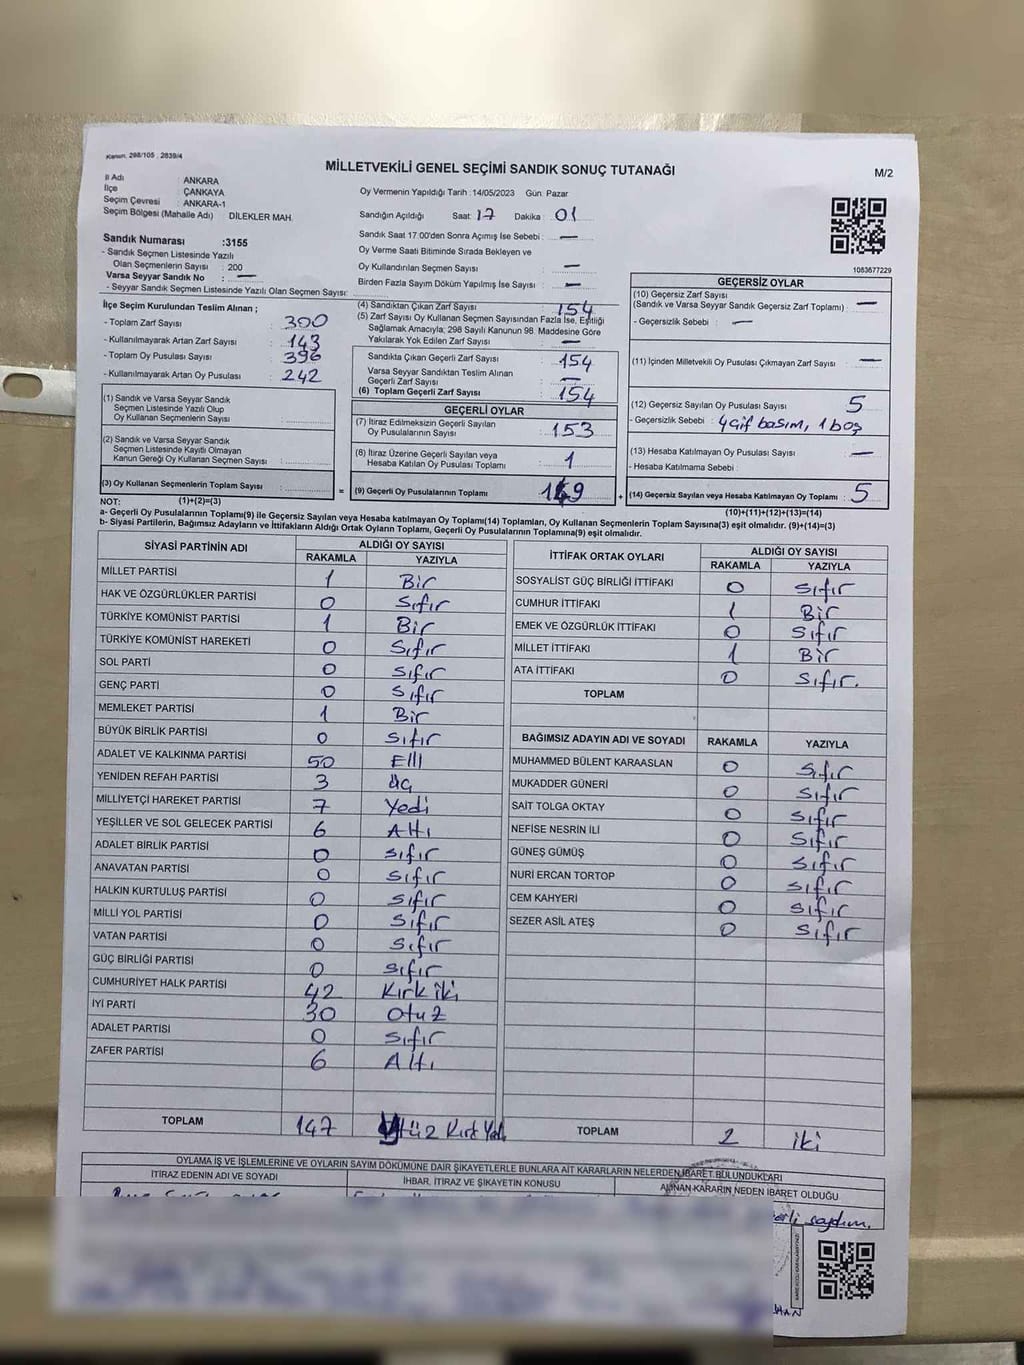 Kanun. 298/105 ; 2839/4
MİLLETVEKİLİ GENEL SEÇİMİ SANDIK SONUÇ TUTANAĞI
M/2
İl Adı : ANKARA
İlçe : ÇANKAYA
Seçim Çevresi : ANKARA-1
Seçim Bölgesi (Mahalle Adı) DİLEKLER MAH.
Sandık Numarası :3155
- Sandık Seçmen Listesinde Yazılı
Olan Seçmenlerin Sayısı : 200
Varsa Seyyar Sandık No : —
- Seyyar Sandık Seçmen Listesinde Yazılı Olan Seçmen Sayısı:
Oy Vermenin Yapıldığı Tarih : 14/05/2023 Gün: Pazar
Sandığın Açıldığı Saat: 17 Dakika : 01
Sandık Saat 17:00'den Sonra Açımış İse Sebebi : —
Oy Verme Saati Bitiminde Sırada Bekleyen ve
Oy Kullandırılan Seçmen Sayısı : —
Birden Fazla Sayım Döküm Yapılmış İse Sayısı : —
1083677229
İlçe Seçim Kurulundan Teslim Alınan ;
- Toplam Zarf Sayısı : 300
- Kullanılmayarak Artan Zarf Sayısı : 143
- Toplam Oy Pusulası Sayısı : 396
- Kullanılmayarak Artan Oy Pusulası : 242
(1) Sandık ve Varsa Seyyar Sandık
Seçmen Listesinde Yazılı Olup
Oy Kullanan Seçmenlerin Sayısı :
(2) Sandık ve Varsa Seyyar Sandık
Seçmen Listesinde Kayıtlı Olmayan
Kanun Gereği Oy Kullanan Seçmen Sayısı :
(3) Oy Kullanan Seçmenlerin Toplam Sayısı :
(4) Sandıktan Çıkan Zarf Sayısı : 154
(5) Zarf Sayısı Oy Kullanan Seçmen Sayısından Fazla İse, Eşitliği
Sağlamak Amacıyla; 298 Sayılı Kanunun 98. Maddesine Göre
Yakılarak Yok Edilen Zarf Sayısı : —
Sandıkta Çıkan Geçerli Zarf Sayısı : 154
Varsa Seyyar Sandıktan Teslim Alınan
Geçerli Zarf Sayısı : —
(6) Toplam Geçerli Zarf Sayısı : 154
GEÇERLİ OYLAR
(7) İtiraz Edilmeksizin Geçerli Sayılan
Oy Pusulalarının Sayısı : 153
(8) İtiraz Üzerine Geçerli Sayılan veya
Hesaba Katılan Oy Pusulası Toplamı : 1
= (9) Geçerli Oy Pusulalarının Toplamı : 149 +
GEÇERSİZ OYLAR
(10) Geçersiz Zarf Sayısı
(Sandık ve Varsa Seyyar Sandık Geçersiz Zarf Toplamı) : —
- Geçersizlik Sebebi : —
(11) İçinden Milletvekili Oy Pusulası Çıkmayan Zarf Sayısı : —
(12) Geçersiz Sayılan Oy Pusulası Sayısı : 5
- Geçersizlik Sebebi : 4 çif basım, 1 boş
(13) Hesaba Katılmayan Oy Pusulası Sayısı : —
- Hesaba Katılmama Sebebi :
(14) Geçersiz Sayılan veya Hesaba Katılmayan Oy Toplamı : 5
NOT: (1)+(2)=(3)
(10)+(11)+(12)+(13)=(14)
a- Geçerli Oy Pusulalarının Toplamı(9) ile Geçersiz Sayılan veya Hesaba katılmayan Oy Toplamı(14) Toplamları, Oy Kullanan Seçmenlerin Toplam Sayısına(3) eşit olmalıdır. (9)+(14)=(3)
b- Siyasi Partilerin, Bağımsız Adayların ve İttifakların Aldığı Ortak Oyların Toplamı, Geçerli Oy Pusulalarının Toplamına(9) eşit olmalıdır.
SİYASİ PARTİNİN ADI ALDIĞI OY SAYISI
RAKAMLA YAZIYLA
MİLLET PARTİSİ 1 Bir
HAK VE ÖZGÜRLÜKLER PARTİSİ 0 Sıfır
TÜRKİYE KOMÜNİST PARTİSİ 1 Bir
TÜRKİYE KOMÜNİST HAREKETİ 0 Sıfır
SOL PARTİ 0 Sıfır
GENÇ PARTİ 0 Sıfır
MEMLEKET PARTİSİ 1 Bir
BÜYÜK BİRLİK PARTİSİ 0 Sıfır
ADALET VE KALKINMA PARTİSİ 50 Elli
YENİDEN REFAH PARTİSİ 3 üç
MİLLİYETÇİ HAREKET PARTİSİ 7 Yedi
YEŞİLLER VE SOL GELECEK PARTİSİ 6 Altı
ADALET BİRLİK PARTİSİ 0 sıfır
ANAVATAN PARTİSİ 0 sıfır
HALKIN KURTULUŞ PARTİSİ 0 sıfır
MİLLİ YOL PARTİSİ 0 sıfır
VATAN PARTİSİ 0 sıfır
GÜÇ BİRLİĞİ PARTİSİ 0 sıfır
CUMHURİYET HALK PARTİSİ 42 Kırk iki
İYİ PARTİ 30 otuz
ADALET PARTİSİ 0 sıfır
ZAFER PARTİSİ 6 Altı
TOPLAM 147
İTTİFAK ORTAK OYLARI ALDIĞI OY SAYISI
RAKAMLA YAZIYLA
SOSYALİST GÜÇ BİRLİĞİ İTTİFAKI 0 sıfır
CUMHUR İTTİFAKI 1 Bir
EMEK VE ÖZGÜRLÜK İTTİFAKI 0 sıfır
MİLLET İTTİFAKI 1 Bir
ATA İTTİFAKI 0 sıfır.
TOPLAM
BAĞIMSIZ ADAYIN ADI VE SOYADI RAKAMLA YAZIYLA
MUHAMMED BÜLENT KARAASLAN 0 sıfır
MUKADDER GÜNERİ 0 sıfır
SAİT TOLGA OKTAY 0 sıfır
NEFİSE NESRİN İLİ 0 sıfır
GÜNEŞ GÜMÜŞ 0 sıfır
NURİ ERCAN TORTOP 0 sıfır
CEM KAHYERİ 0 sıfır
SEZER ASİL ATEŞ 0 sıfır
TOPLAM 2 iki
OYLAMA İŞ VE İŞLEMLERİNE VE OYLARIN SAYIM DÖKÜMÜNE DAİR ŞİKAYETLERLE BUNLARA AİT KARARLARIN NELERDEN İBARET BULUNDUKLARI
İTİRAZ EDENİN ADI VE SOYADI İHBAR, İTİRAZ VE ŞİKAYETİN KONUSU ALINAN KARARIN NEDEN İBARET OLDUĞU
saydım.